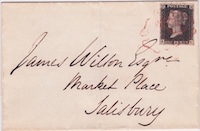 POSTAGE
James Wilson Esqre
Market Place
Salisbury